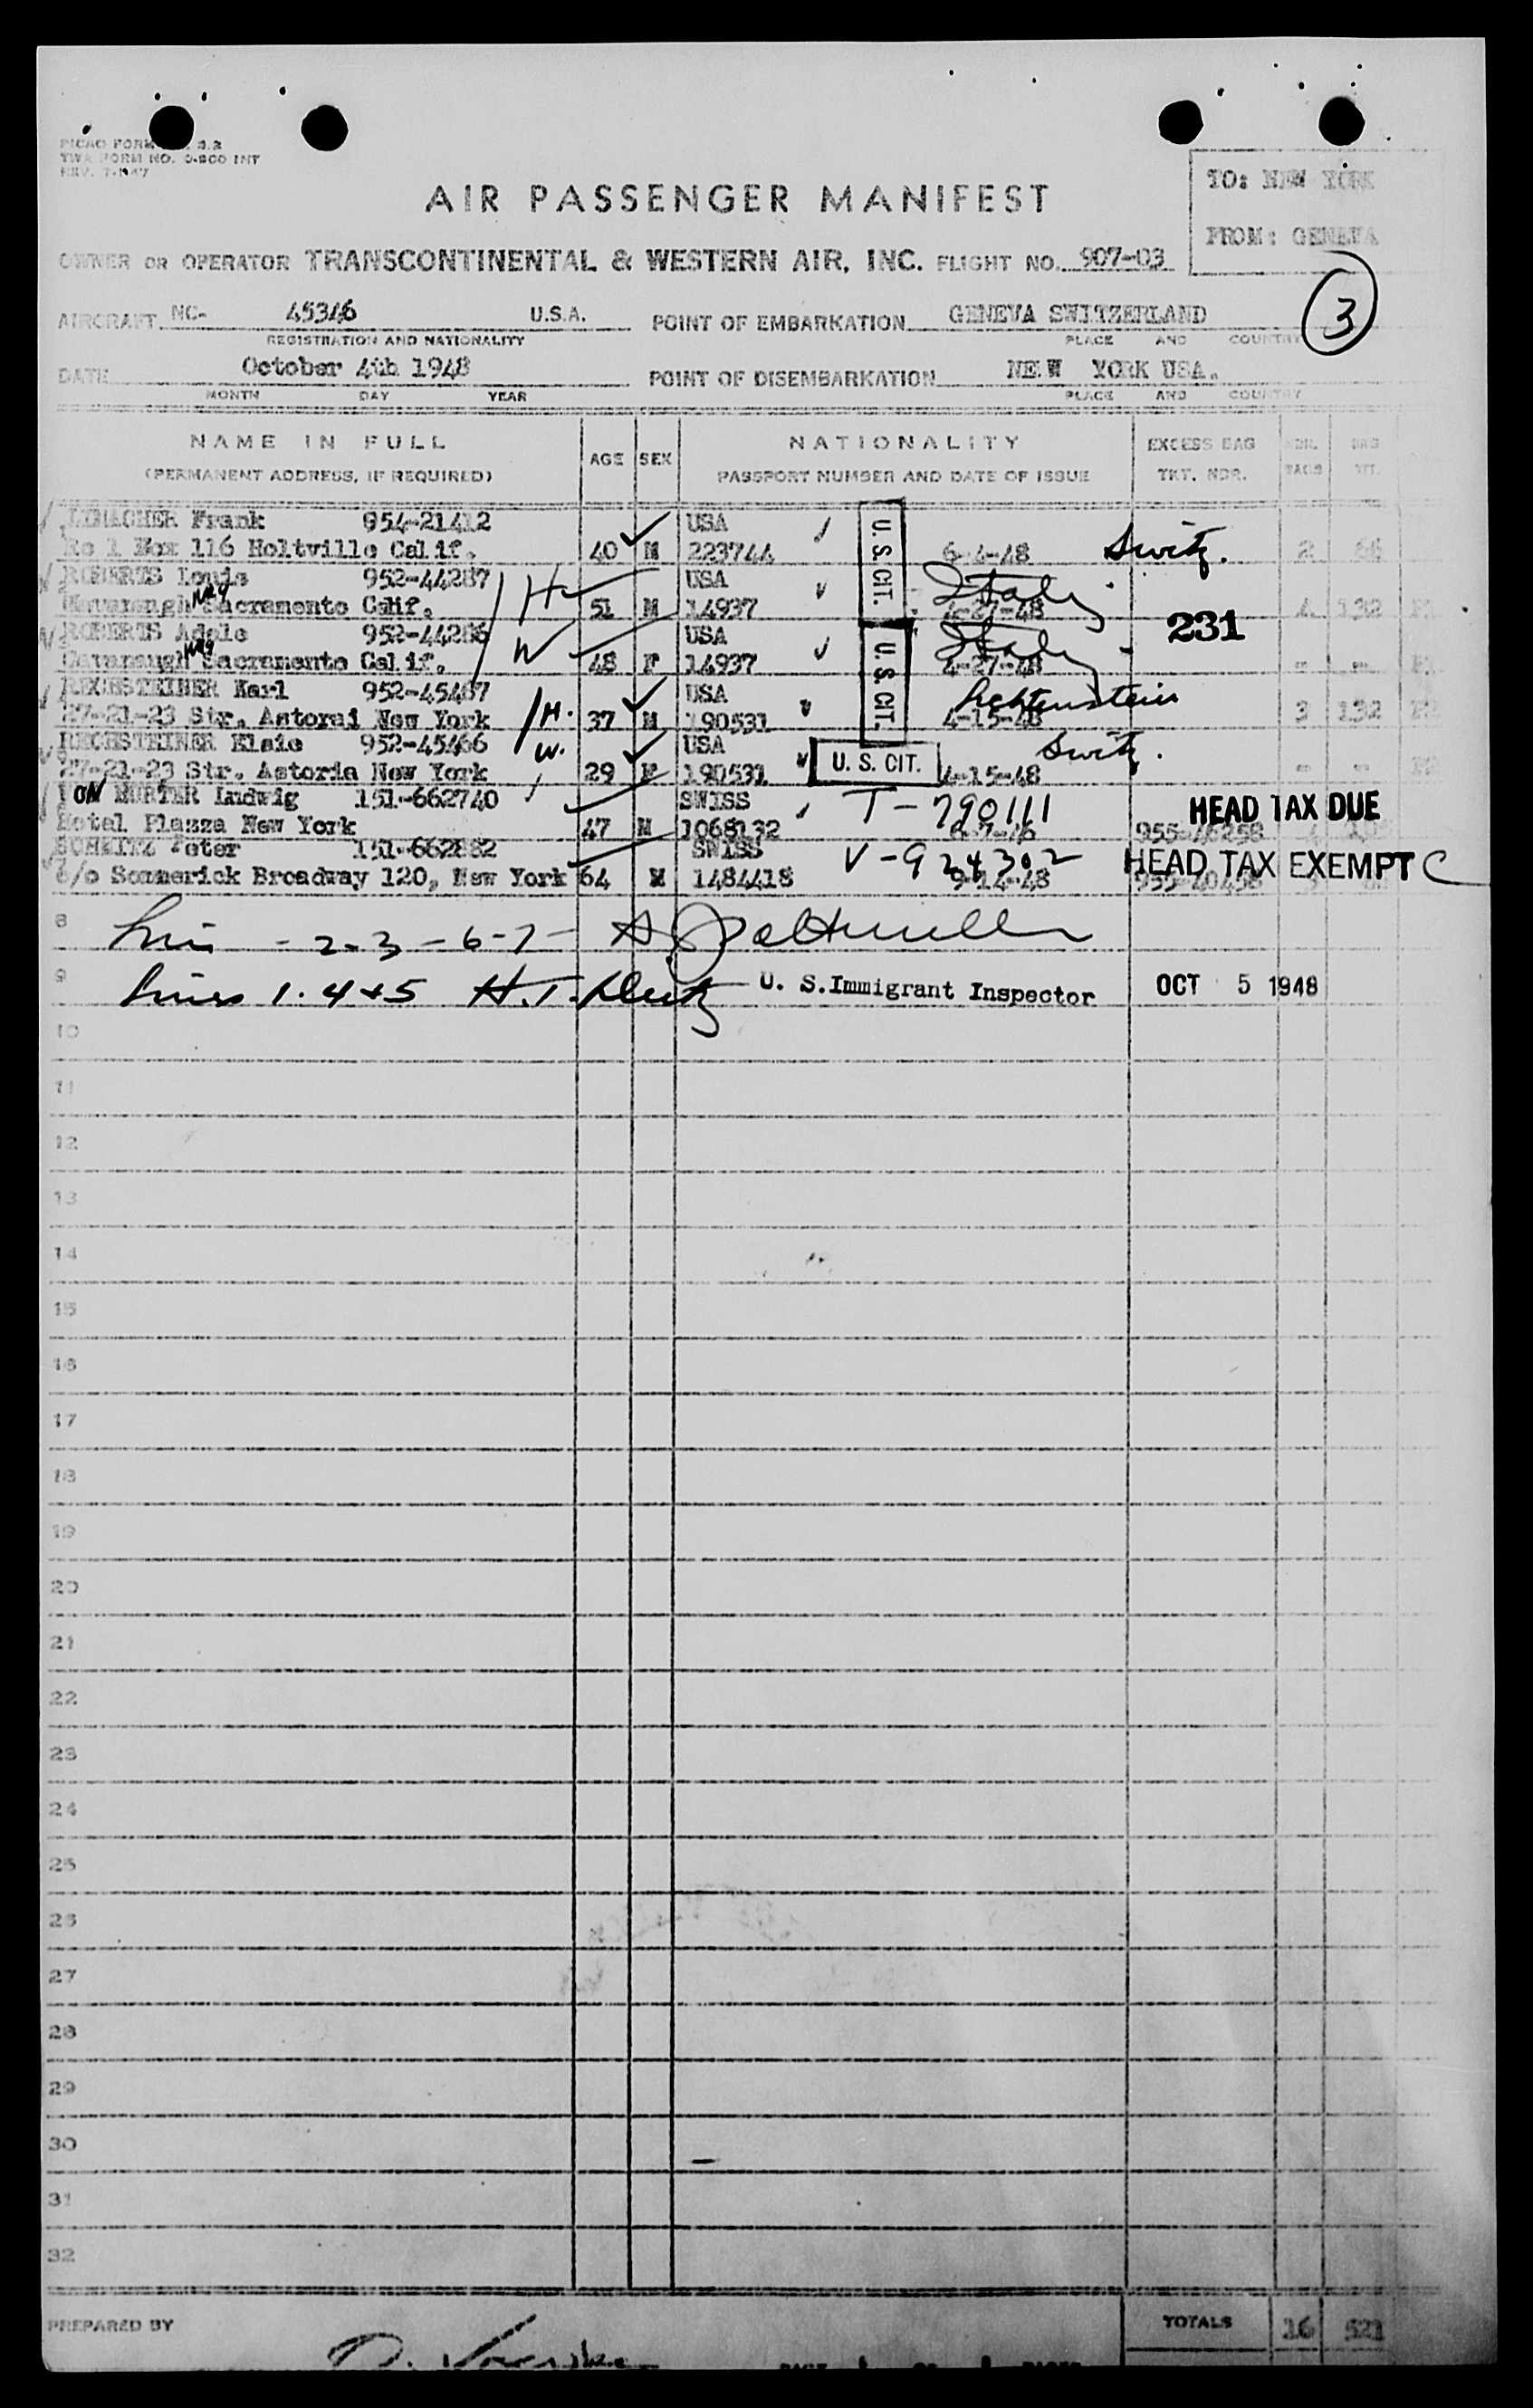 PICAO FORM 3.2
TWA FORM NO. O-800 INT
REV. 7-1947
TO: NEW YORK
FROM: GENEVA
AIR PASSENGER MANIFEST
OWNER OR OPERATOR TRANSCONTINENTAL & WESTERN AIR, INC. FLIGHT NO. 907-03
3
AIRCRAFT NC- 45346 U.S.A. POINT OF EMBARKATION GENEVA SWITZERLAND
REGISTRATION AND NATIONALITY PLACE AND COUNTRY
DATE October 4th 1948 POINT OF DISEMBARKATION NEW YORK USA.
MONTH DAY YEAR PLACE AND COUNTRY
NAME IN FULL AGE SEX NATIONALITY EXCESS BAG
(PERMANENT ADDRESS, IF REQUIRED) PASSPORT NUMBER AND DATE OF ISSUE TKT. NBR. BAGS WT.
Frank 954-21412 USA U.S.CIT.
1 Box 116 Holtville Calif. 40 M 223744 6-4-48 Switz. 2 66
ROBERTS Louis 952-44287 H USA Italy
Sacramento Calif. 51 M 14937 4-27-48 4 132
231
ROBERTS Adele 952-44286 W USA U.S CIT. Italy
Cavanaugh Sacramento Calif. 48 F 14937 4-27-48 - -
RECHSTEINER Karl 952-45467 H. USA Lichtenstein
27-21-23 Str. Astorai New York 37 M 190531 4-15-48 3 132
RECHSTEINER Elsie 952-45466 W. USA U. S. CIT. Switz.
27-21-23 Str. Astoria New York 29 F 190531 4-15-48 - -
VON MURTER Ludwig 151-662740 SWISS T-790111 HEAD TAX DUE
Hotel Plazza New York 47 M 1068132 955-46258
SCHMITZ Peter 151-662882 SWISS V-924302 HEAD TAX EXEMPT C
c/o Sommerick Broadway 120, New York 64 M 1484418 9-14-48 955-40458
8 - 2-3-6-7-
9 Lines 1. 4+5 H.T. U. S.Immigrant Inspector OCT 5 1948
10
11
12
13
14
15
16
17
18
19
20
21
22
23
24
25
26
27
28
29
30
31
32
PREPARED BY TOTALS 16 521